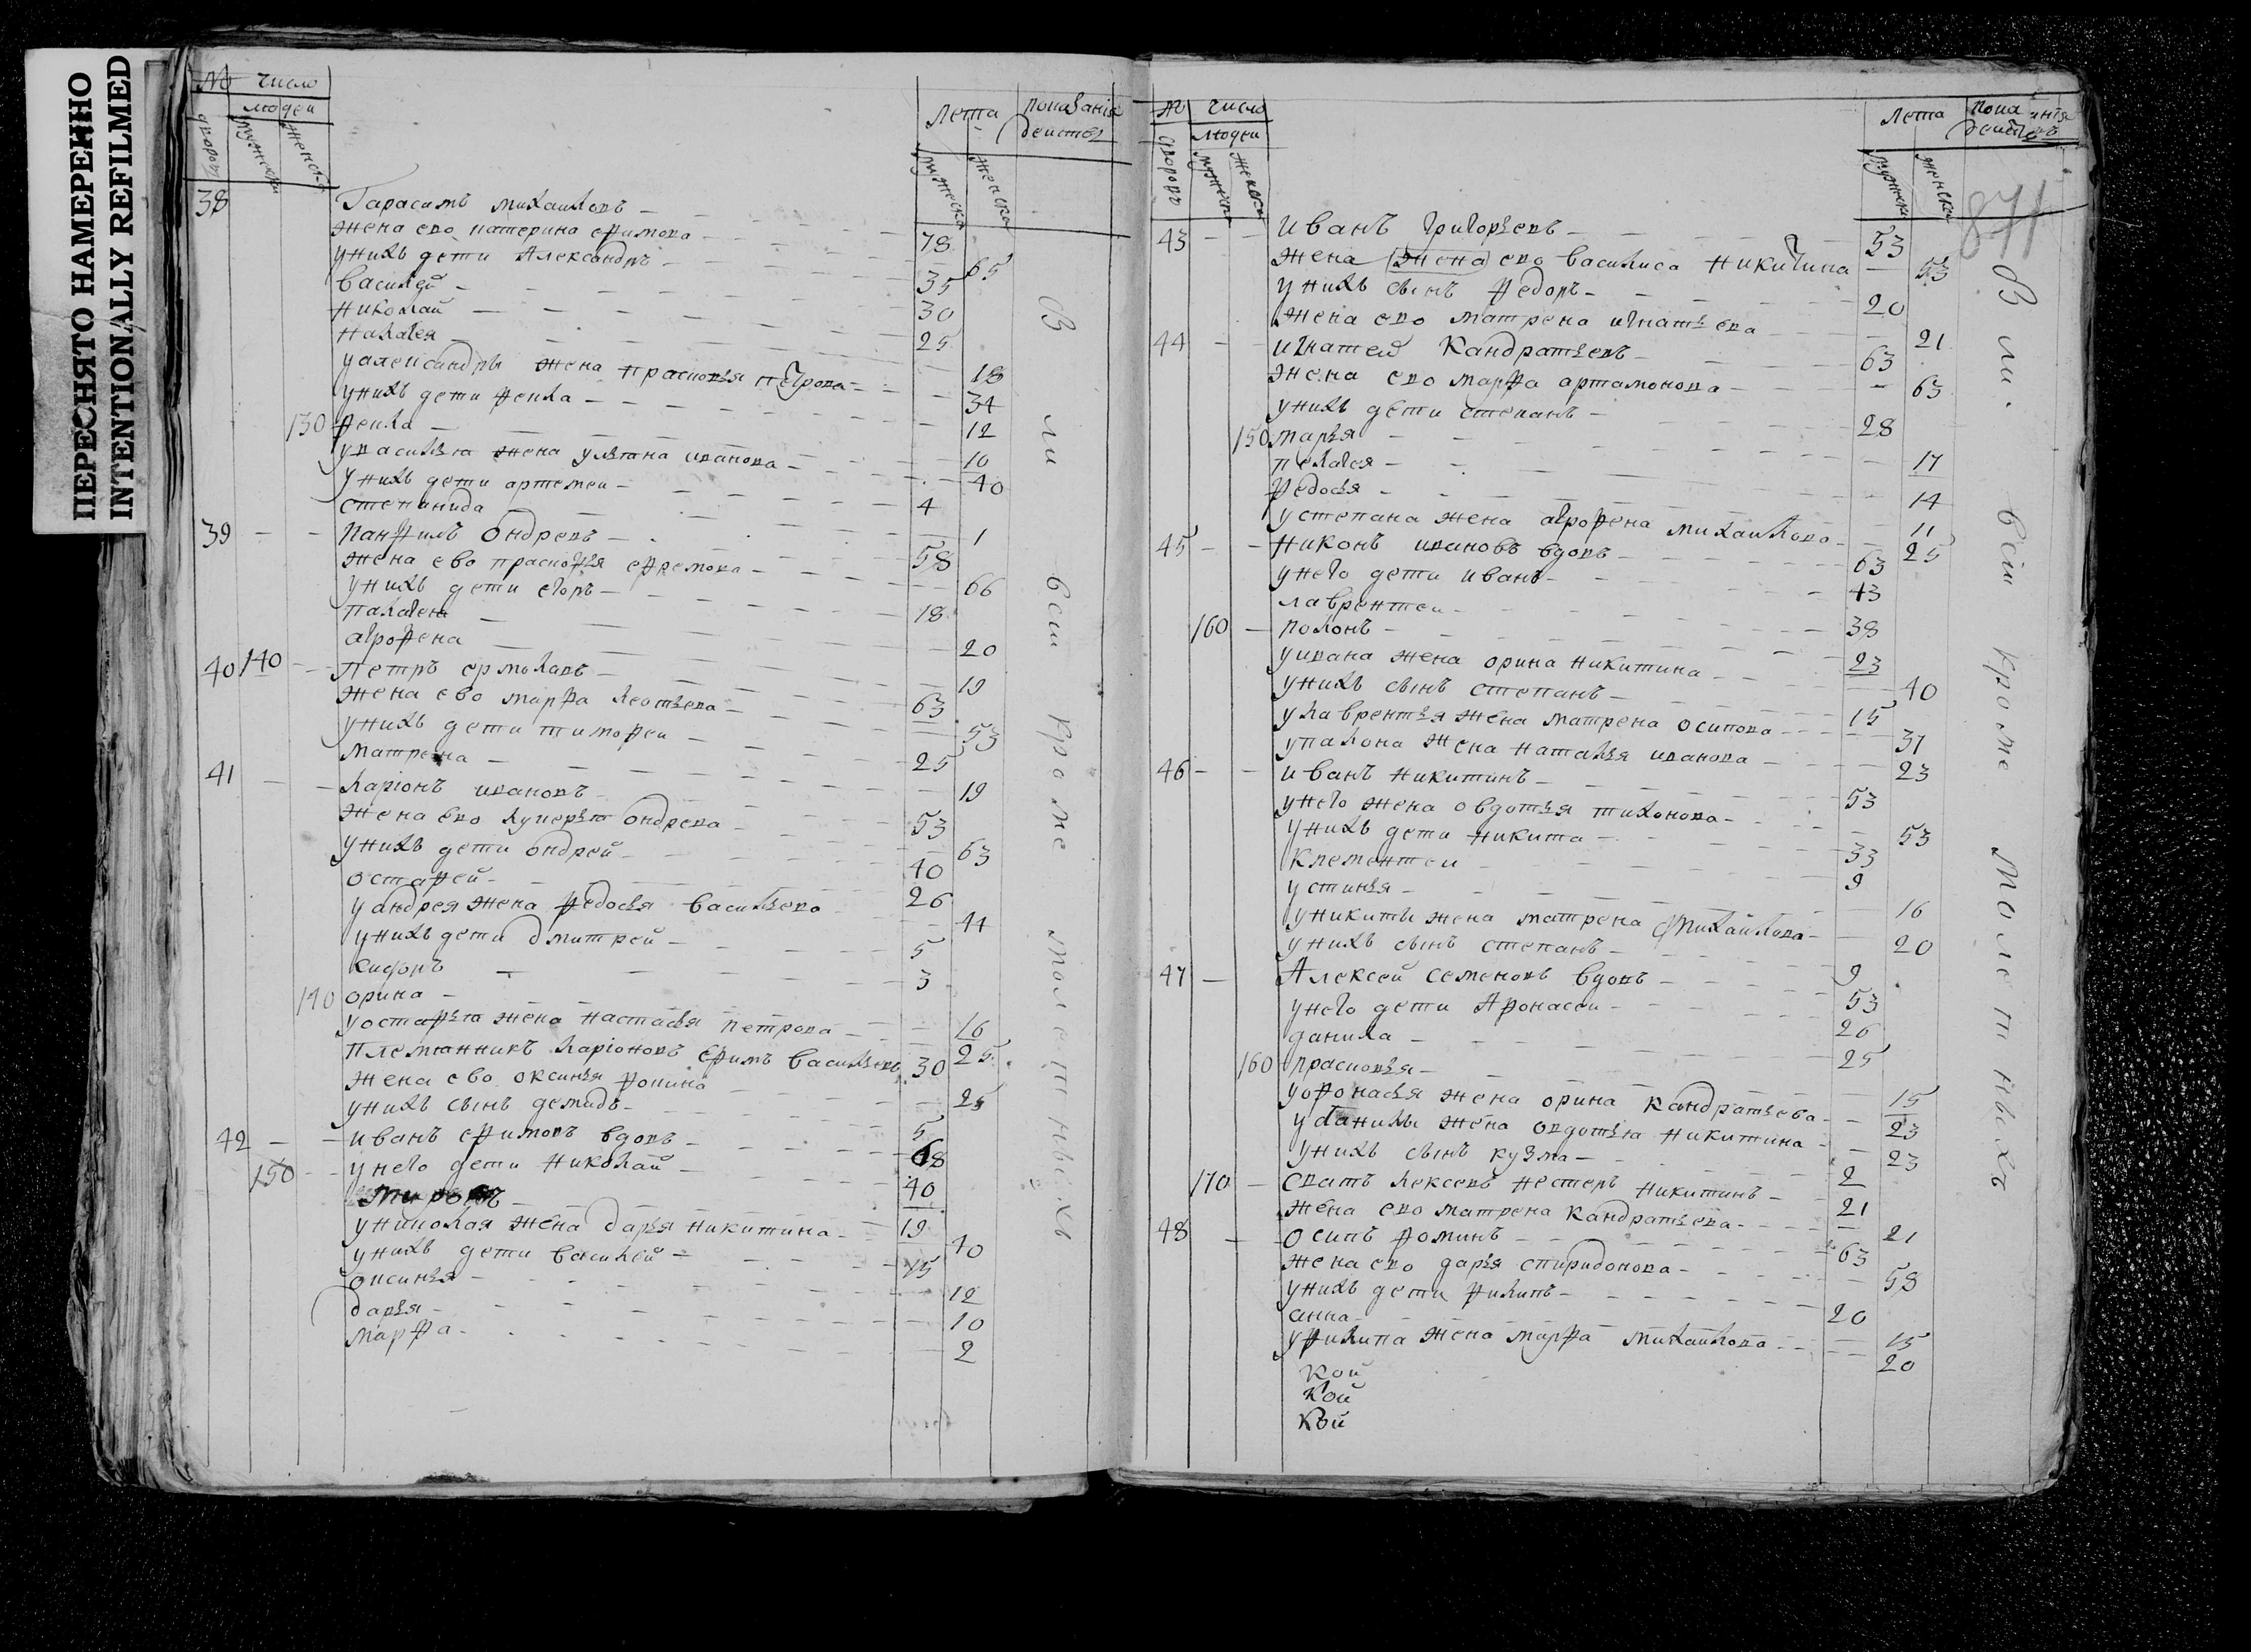 ПЕРЕСНЯТО НАМЕРЕННО
INTENTIONALLY REFILMED
№ число
людей
дворовъ мужеска женска
лета показанiя
действ
мужеска женска
38 Гарасимъ михаиловъ — 78
жена ево катерина ефимова — 65
унихъ дети Александръ — 35
василей — 30
николай — 25
палагея — 18
уалександры жена прасковя петрова — 34
унихъ дети фекла — 12
130 фекла — 10
увасилья жена ульяна иванова — 40
унихъ дети артемеи — 4
степанида — 1
39 — — панфилъ ондревъ — 58
жена ево прасковья ефремова — 66
унихъ дети егоръ — 18
палагея — 20
агрофена — 19
40 140 — петръ ермолавъ — 63
жена ево марфа леонтьева — 53
унихъ дети тимофеи — 25
матрена — 19
41 — — ларiонъ ивановъ — 53
жена ево лукерья ондрева — 63
унихъ дети ондрей — 40
остафей — 26
уандрея жена федосья васильева — 44
унихъ дети дмитрей — 5
сидоръ — 3
140 орина — 16
уостафья жена настасья петрова — 25
племянникъ ларiоновъ ефимъ васильевъ 30
жена ево оксинья фокина — 25
унихъ сынъ демидъ — 5
42 — — иванъ ефимовъ вдовъ — 68
150 — унего дети николай — 40
миронъ — 19
униколая жена дарья никитина — 40
унихъ дети василей — 15
оксинья — 12
дарья — 10
марфа — 2
В
ли
всш
кроме
молетныхъ
№ число
людеи
дворовъ мужеска женска
лета пока анiя
действъ
мужеска женска
871
43 — — иванъ григорьевъ — 53
жена (жена) ево василиса никитина — 53
унихъ сынъ федоръ — 20
жена ево матрена игнатьева — 21
44 — — игнатеи кандратьевъ — 63
жена ево марфа артамонова — 63
унихъ дети степанъ — 28
150 марья — 17
пелагея — 14
федосья — 11
устепана жена агрофена михаилова — 25
45 — — никонъ ивановъ вдовъ — 63
унего дети иванъ — 43
лаврентеи — 38
160 — полонъ — 23
уивана жена орина никитина — 40
унихъ сынъ степанъ — 15
улаврентья жена матрена осипова — 37
упалона жена наталья иванова — 23
46 — — иванъ никитинъ — 53
унего жена овдотья тихонова — 53
унихъ дети никита — 33
клементеи — 9
устинья — 16
уникиты жена матрена михаилова — 20
унихъ сынъ степанъ — 9
47 — Алексей семеновъ вдовъ — 53
унего дети Афонасеи — 26
данила — 25
160 прасковья — 15
уофонасья жена орина кандратьева — 23
уданилы жена овдотья никитина — 23
унихъ сынъ кузма — 2
170 — сватъ лексевъ нестеръ никитинъ — 21
жена ево матрена кандратьева — 21
48 — осипъ фоминъ — 63
жена ево дарья спиридонова — 58
унихъ дети филипъ — 20
анна — 15
уфилипа жена марфа михаилова — 20
кой
кой
кой
В
ли.
всiи
кроме
молетныхъ